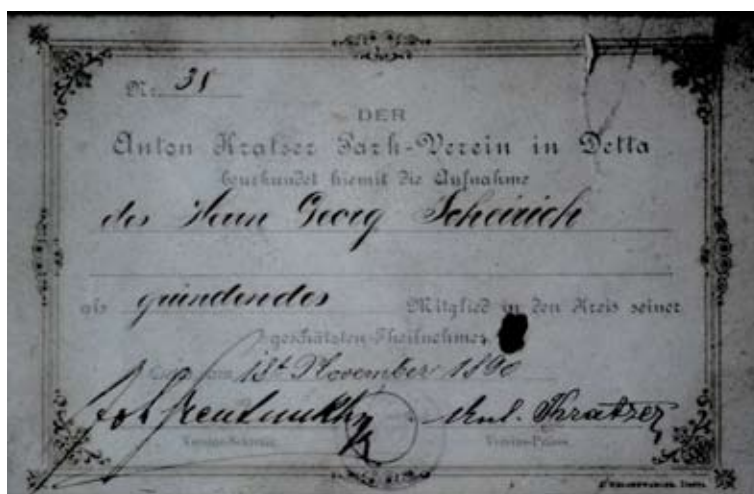 Nr. 31
DER
Anton Kratser Park-Verein in Detta
beurkundet hiemit die Aufnahme
des Herrn Georg Scheirich
als gründendes Mitglied in den Kreis seiner
geschätzten Theilnehmer.
am 13t November 1890
Ant. Kratser
Vereins-Präses.